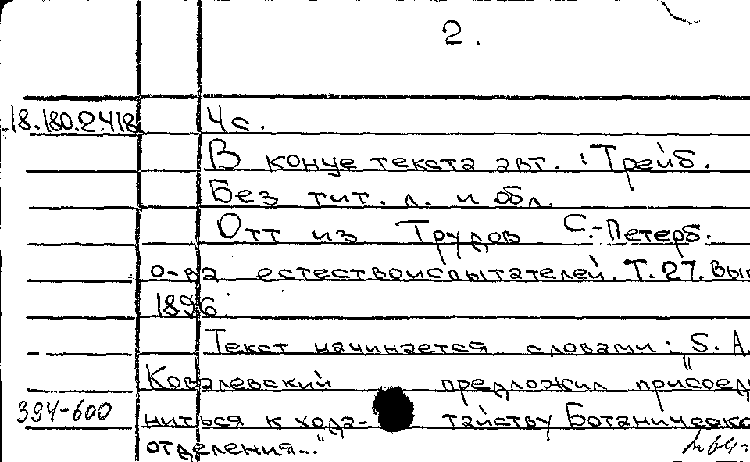 2.
18.180.2418 4с.
В конце текста авт.: Трейб.
Без тит. л. и обл.
Отт из Трудов С.-Петерб.
о-ва естествоиспытателей. Т.27. Вып
1896
Текст начинается словами: "S. А.
Ковалевский предложил присоед
394-600 ниться к хода- тайству Ботаническо
отделения..."